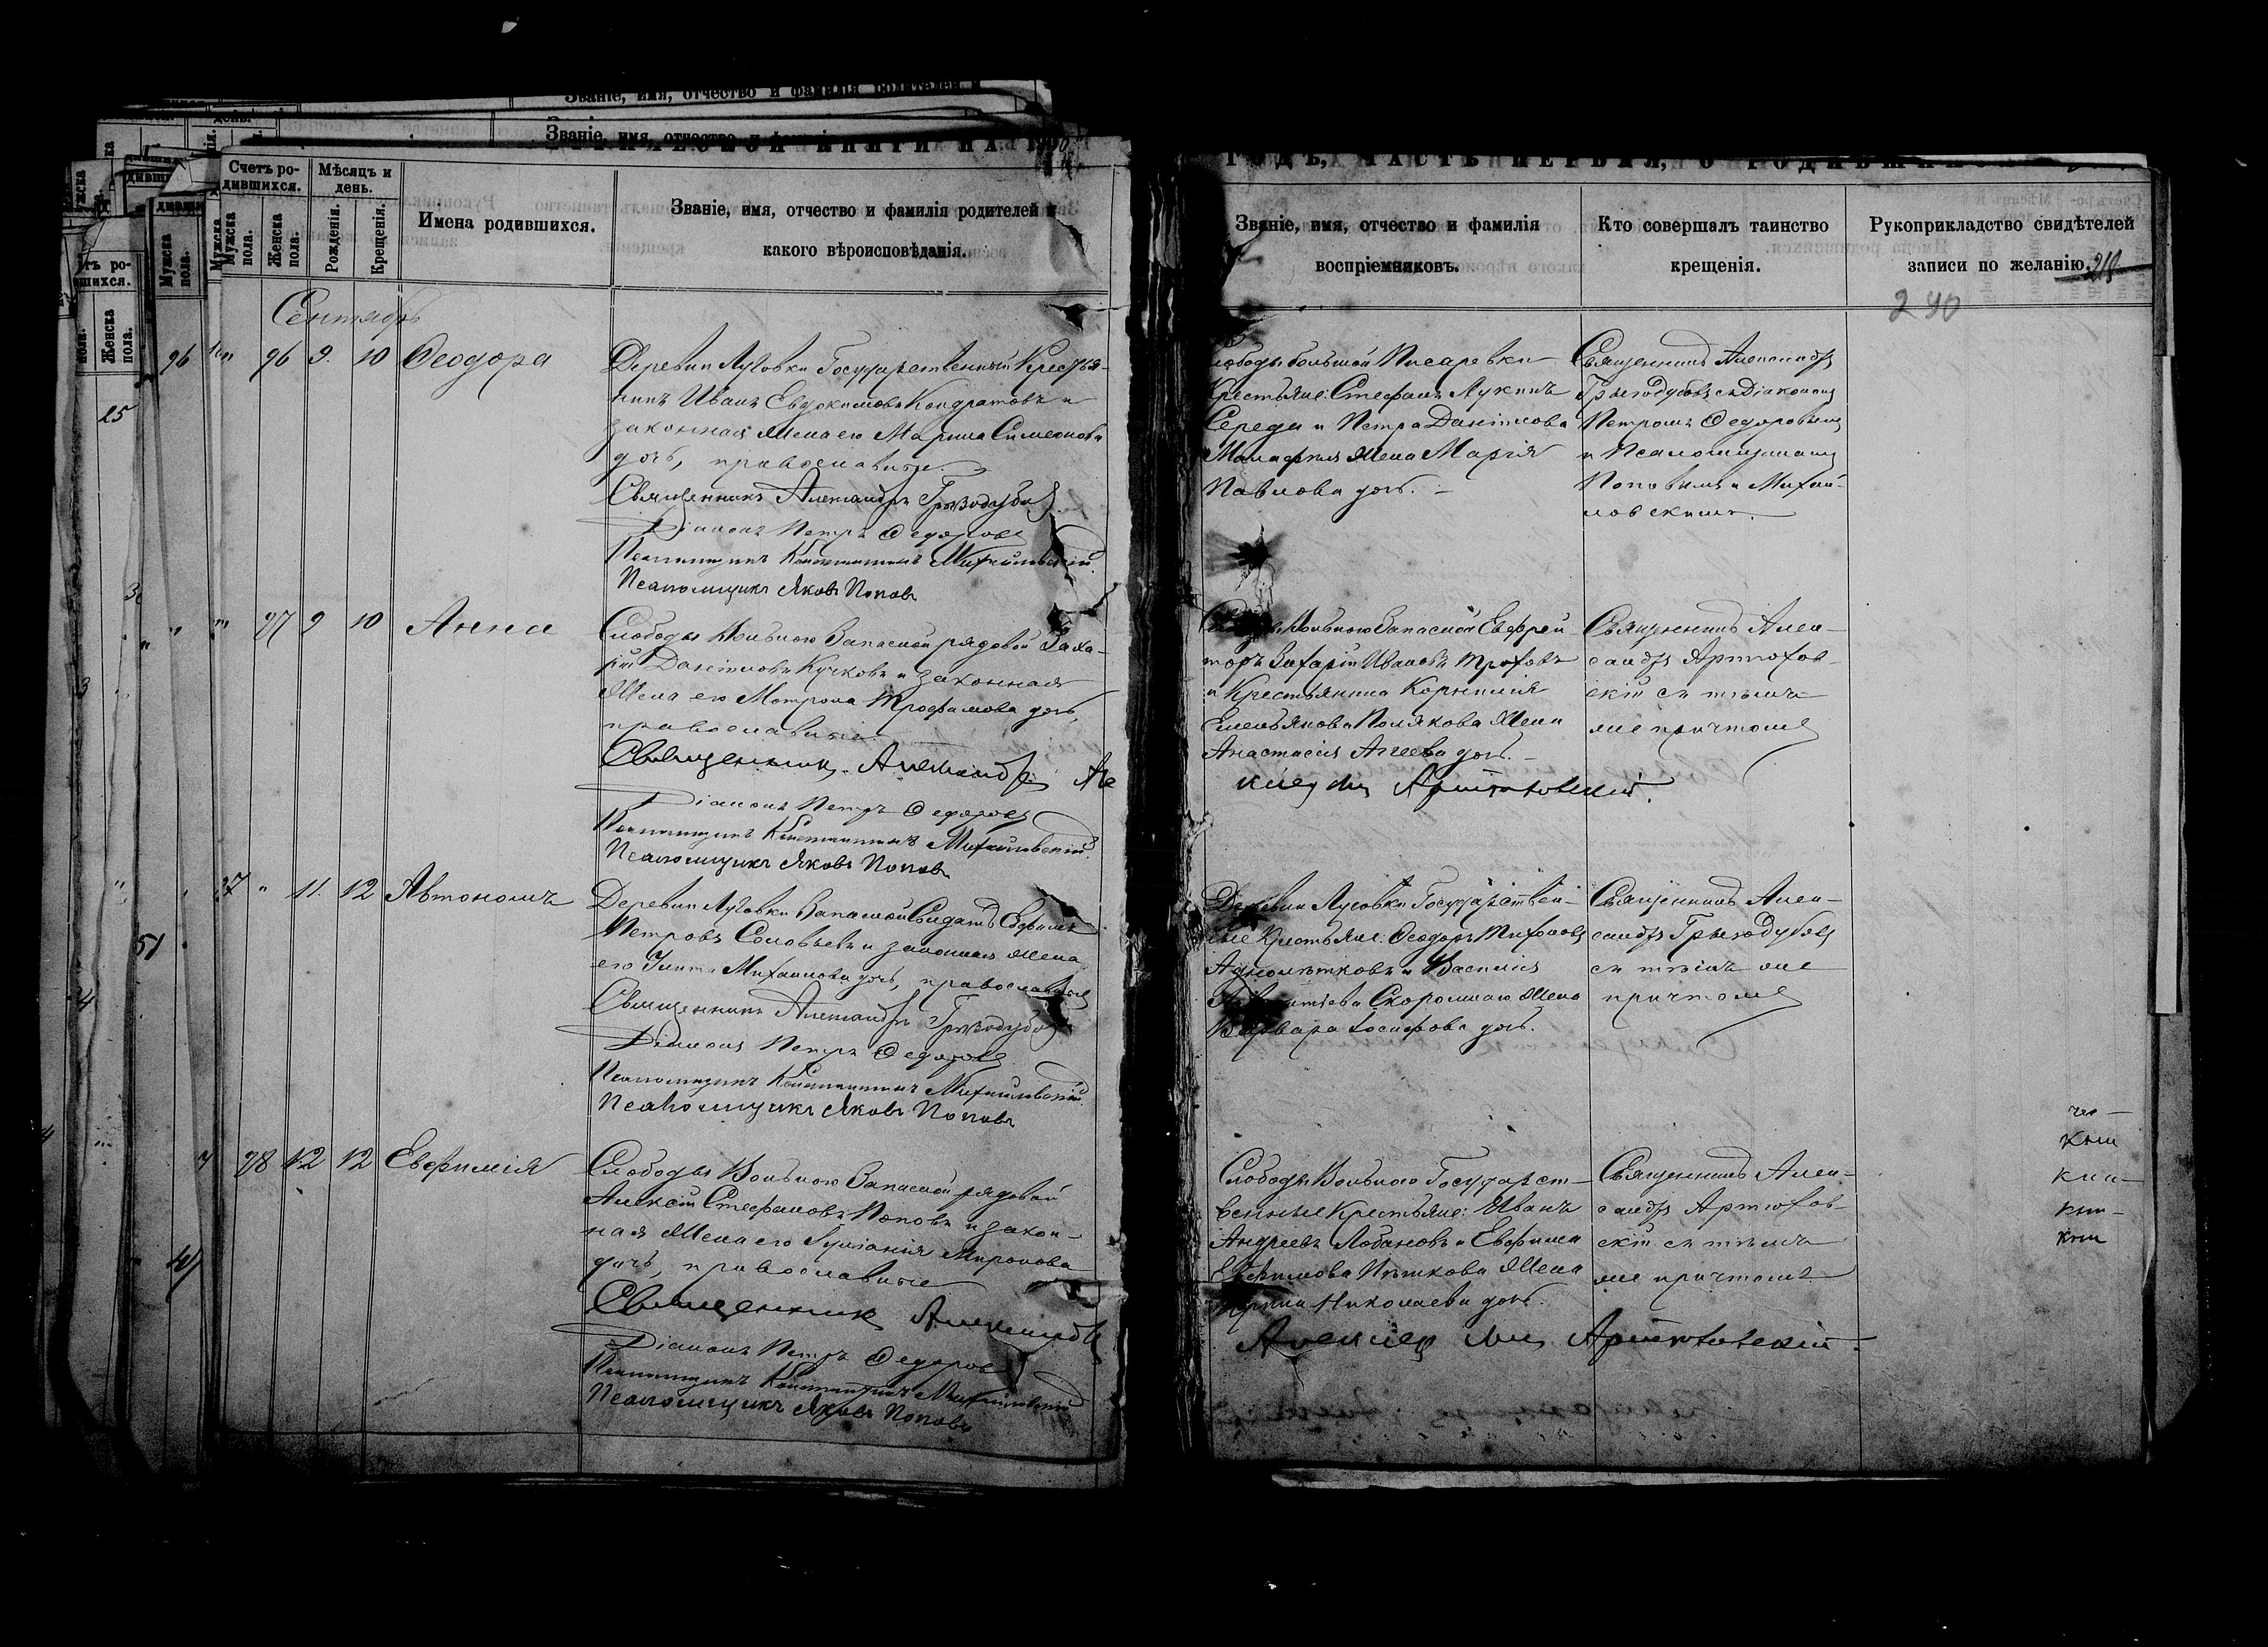 Званіе, имя, отчество и фамилія родителей и
Званіе, имя, отчество и фамилі
ГОДЪ, ЧАСТЬ ПЕРВАЯ, О РОДИВШИ
Счетъ ро-
дившихся.
Мѣсяцъ и
день.
Мужска
пола.
Женска
пола.
Рожденія.
Крещенія.
Имена родившихся.
Званіе, имя, отчество и фамилія родителей и
какого вѣроисповѣданія.
Званіе, имя, отчество и фамилія
воспріемниковъ.
Кто совершалъ таинство
крещенія.
Рукоприкладство свидѣтелей
записи по желанію.
240
Сентябрь
96 9. 10 Ѳеодора
Деревни Луговки Государственный Крестья-
нинъ Иванъ Евдокимовъ Кондратовъ и
законная жена его Марина Симеонова
дочь, православные.
Священникъ Александръ Грызодубов
Діаконъ Петръ Ѳедоровъ
Псаломщикъ Константинъ Михайловскій
Псаломщикъ Яковъ Поповъ
Слободы Большой Писаревки
Крестьяне: Стефанъ Лукинъ
Середа и Петра Даніилова
жена Марія
Павлова дочь.
Священникъ Александръ
Грызодубовъ съ Діакономъ
Петромъ Ѳедоровымъ
и Псаломщиками
Поповымъ и Михай-
ловскимъ.
97 9 10 Анна
Слободы Вольного Запасной рядовой Заха-
рій Даніиловъ Кучковъ и законная
жена его Матрона Трофимова дочь,
православные.
Священникъ Александръ Але
Діаконъ Петръ Ѳедоровъ
Псаломщикъ Константинъ Михайловскій
Псаломщикъ Яковъ Поповъ
Слободы Вольного Запасной Ефрей-
торъ Захарій Ивановъ
и Крестьянина Корнилія
Емельянова Полякова жена
Анастасія Агеева дочь.
Артюховскій.
Священникъ Алек-
сандръ Артюхов-
скій съ тѣмъ
же причтомъ
97 " 11. 12 Автономъ
Деревни Луговки Запасной Солдатъ Ефимъ
Петровъ Соловьевъ и законная жена
его Михайлова дочь, православные
Священникъ Александръ Грызодубов
Діаконъ Петръ Ѳедоровъ
Псаломщикъ Константинъ Михайловскій
Псаломщикъ Яковъ Поповъ
Деревни Луговки Государствен-
ные Крестьяне: Ѳеодоръ Тихоновъ
и Василія
Скоромнаго жена
Варвара Іосифова дочь.
Священникъ Алек-
сандръ Грызодубовъ
съ тѣмъ же
причтомъ
98 12 12 Евфимія
Слободы Вольного Запасной рядовой
Алексій Стефановъ Поповъ и закон-
ная жена его Іуліанія Миронова
дочь, православные
Священникъ Александръ
Діаконъ Петръ Ѳедоровъ
Псаломщикъ Константинъ Михайловскій
Псаломщикъ Яковъ Поповъ
Слободы Вольного Государст-
венные Крестьяне: Иванъ
Андреевъ Лобановъ и Ефима
Ефимова жена
Николаева дочь.
Артюховскій.
Священникъ Алек-
сандръ Артюхов-
скій съ тѣмъ
же причтомъ